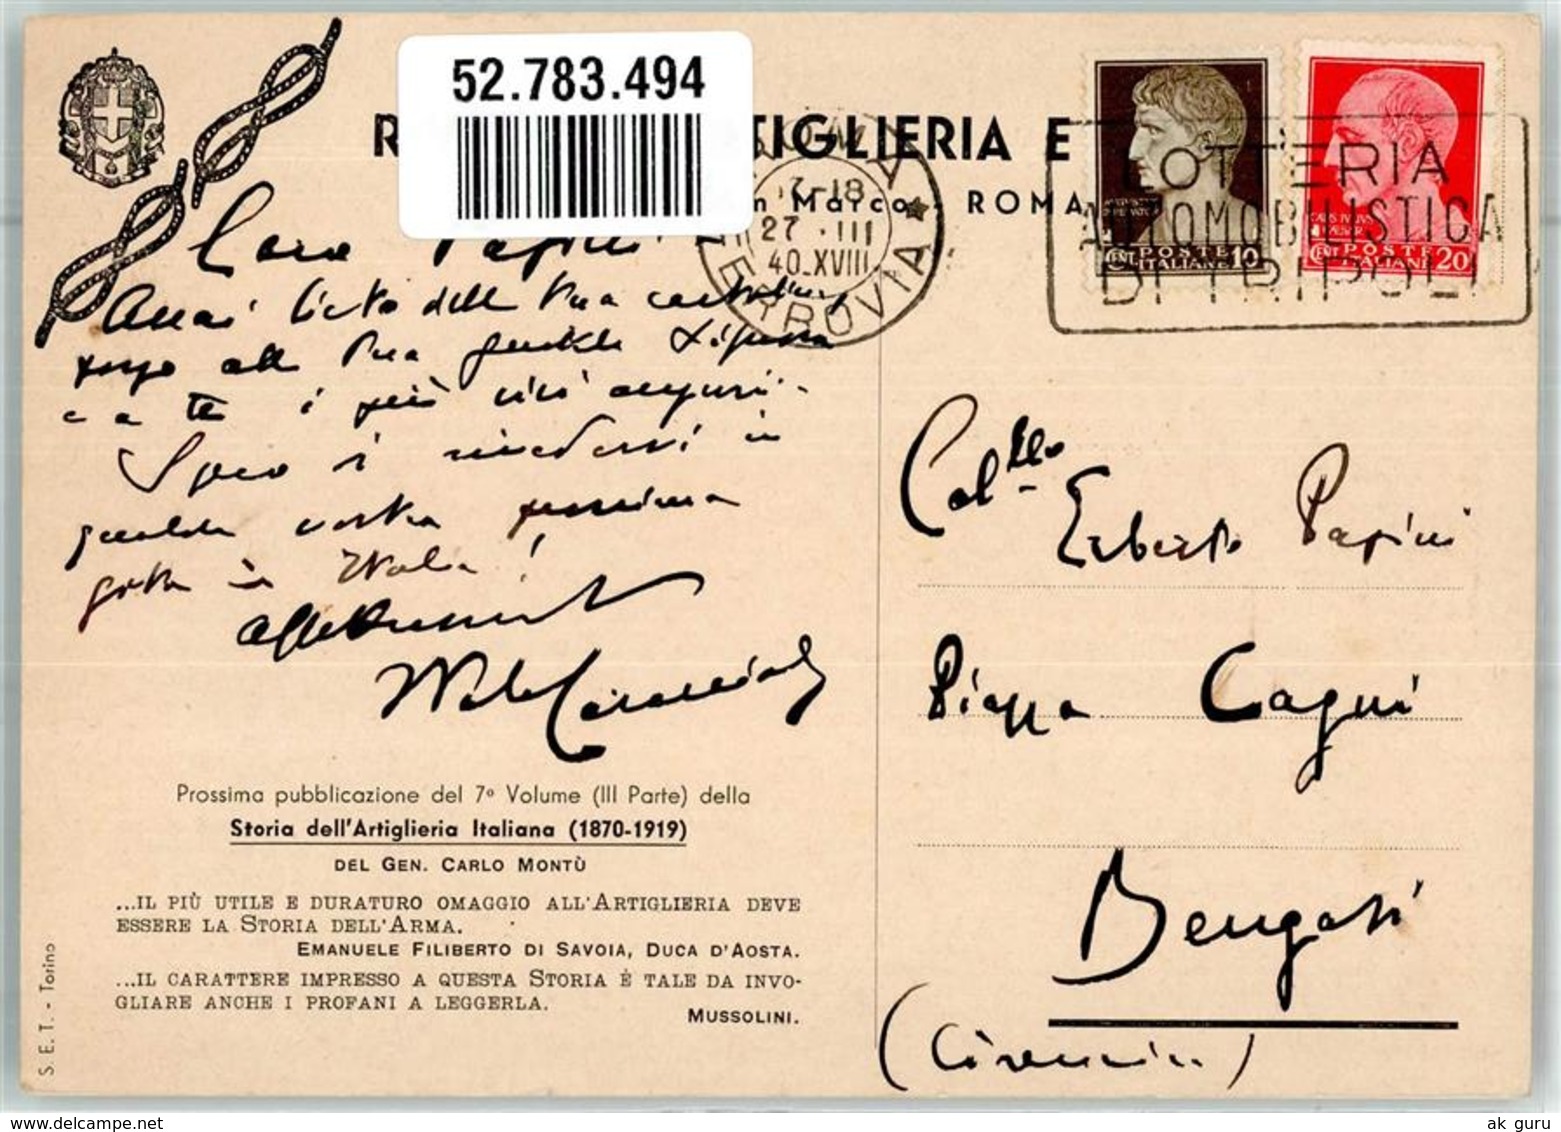 52.783.494
TIGLIERIA E
n Marco - ROMA
ROMA
17-18
27·III
40.XVIII
FERROVIA
LOTTERIA
AUTOMOBILISTICA
DI TRIPOLI
POSTE
ITALIANE
CENT. 10
POSTE
ITALIANE
CENT. 20
Caro Papini
Assai lieto della tua cartolina,
porgo alla tua gentile Signora
e a te i più vivi auguri.
Spero di rivedervi in
qualche vostra prossima
gita in Italia!
Affettuosamente
Col.llo
Erberto Papini
Piazza Cagni
Bengasi
(Cirenaica)
Prossima pubblicazione del 7° Volume (III Parte) della
Storia dell'Artiglieria Italiana (1870-1919)
DEL GEN. CARLO MONTÙ
...IL PIÙ UTILE E DURATURO OMAGGIO ALL'ARTIGLIERIA DEVE
ESSERE LA STORIA DELL'ARMA.
EMANUELE FILIBERTO DI SAVOIA, DUCA D'AOSTA.
...IL CARATTERE IMPRESSO A QUESTA STORIA È TALE DA INVO-
GLIARE ANCHE I PROFANI A LEGGERLA.
MUSSOLINI.
S. E. T. - Torino
ak guru